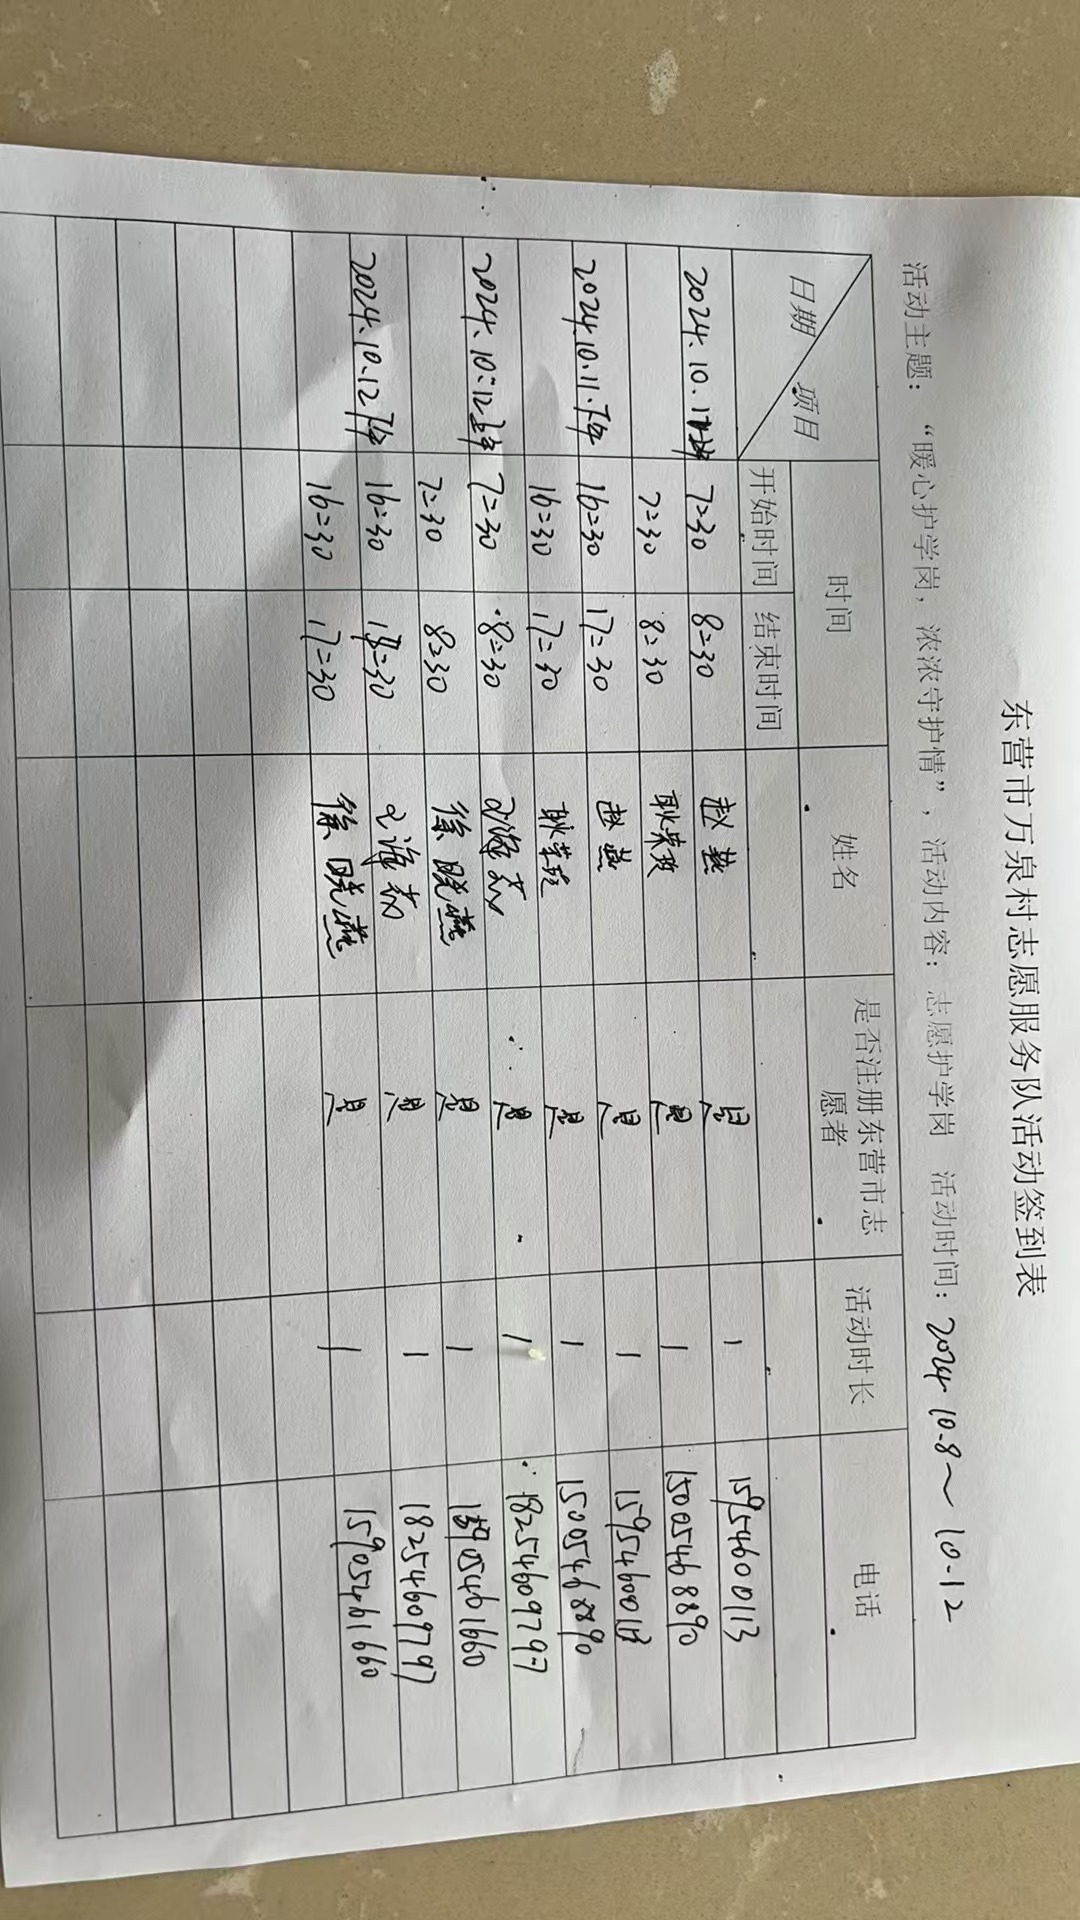 东营市万泉村志愿服务队活动签到表
活动主题：“暖心护学岗，浓浓守护情”，活动内容：志愿护学岗 活动时间：2024 10.8～10.12
项目 日期 时间 姓名 是否注册东营市志愿者 活动时长 电话
开始时间 结束时间
2024.10. 7=30 8=30 赵燕 是 1 15954600113
7=30 8=30 耿荣玫 是 1 15005468890
2024.10.11.下午 16=30 17=30 赵燕 是 1 159546001
16=30 17=30 耿荣 是 1 15005468890
2024.10.12 7=30 8=30 海 是 1 18254609797
7=30 8=30 徐晓燕 是 1 15905461660
2024.10.12下午 16=30 30 海 是 1 18254609797
16=30 17=30 徐晓燕 是 1 15905461660